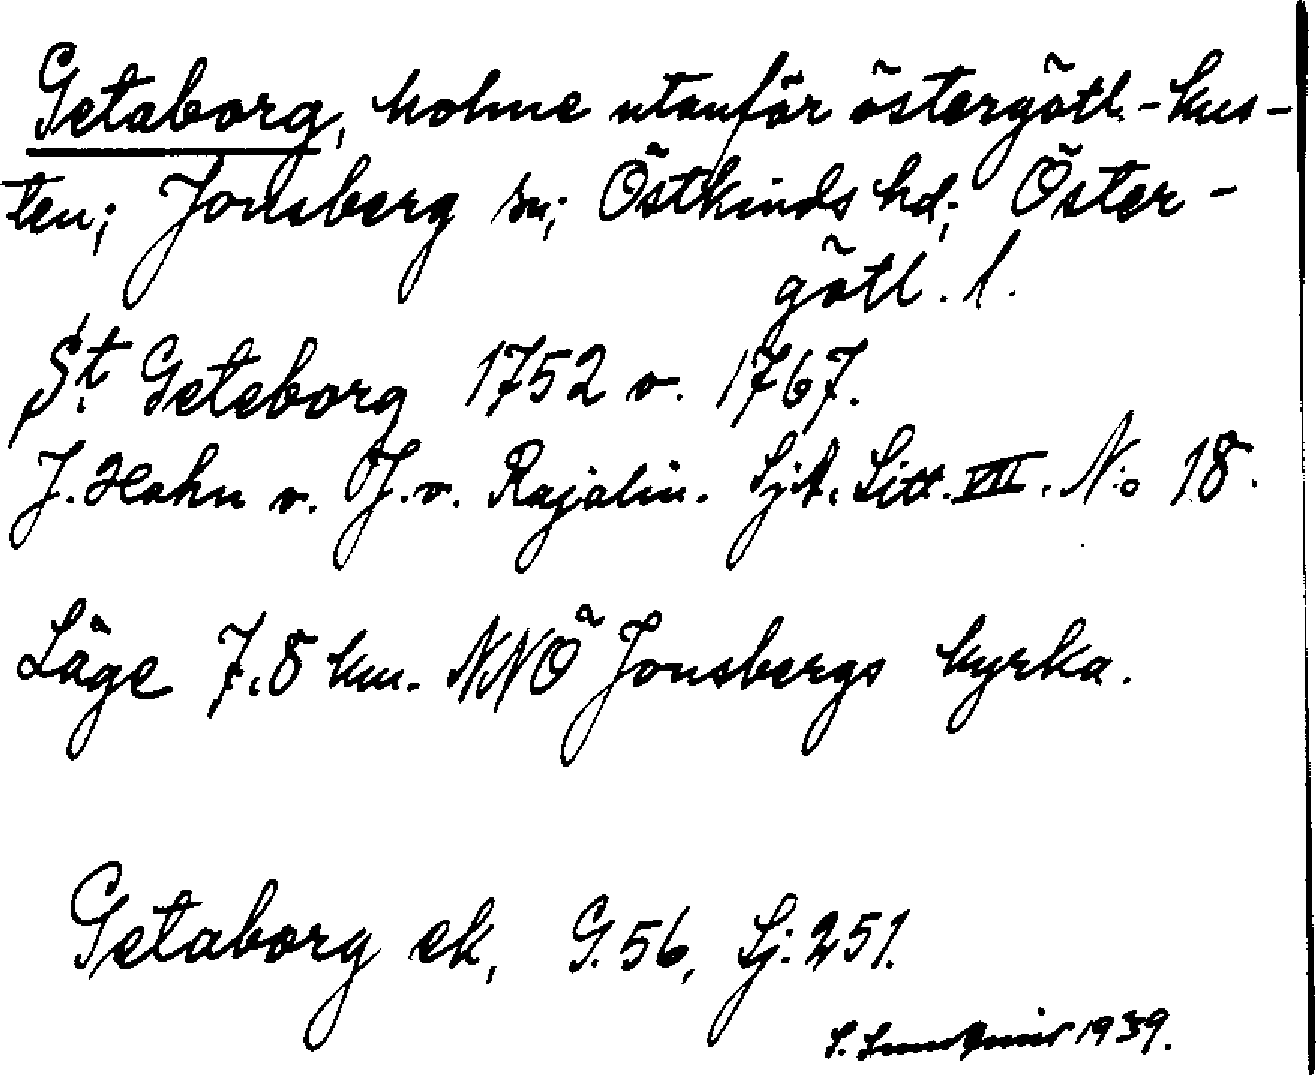 Getaborg, holme utanför östergötl.-kus-
ten; Jonsberg sn; Östkinds hd; Öster-
götl. l.
St. Geteborg 1752 o. 1767.
J. Hahn o. J. v. Rajalin. Sjk. Litt. VIII. No 18.
Läge 7,8 km. NNÖ Jonsbergs kyrka.
Getaborg ek, G. 56, Sj: 251.
S. 1939.